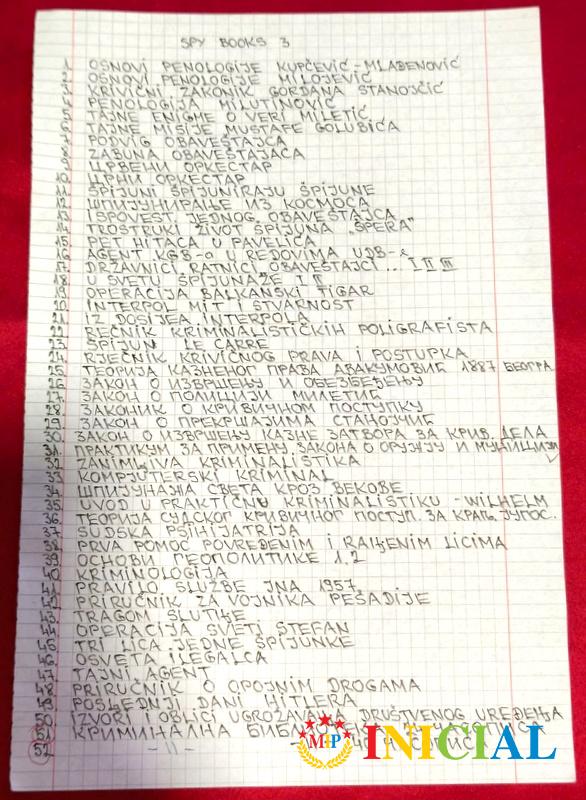 SPY BOOKS 3
1. OSNOVI PENOLOGIJE KUPČEVIĆ-MLAĐENOVIĆ
2. OSNOVI PENOLOGIJE MILOJEVIĆ
3. KRIVIČNI ZAKONIK GORDANA STANOJČIĆ
4. PENOLOGIJA MILUTINOVIĆ
5. TAJNE ENIGME O VERI MILETIĆ
6. TAJNE MISIJE MUSTAFE GOLUBIĆA
7. PODVIG OBAVEŠTAJCA
8. ZABUNA OBAVEŠTAJACA
9. CRVENI ORKESTAR
10. ЦРНИ ОРКЕСТАР
11. ŠPIJUNI ŠPIJUNIRAJU ŠPIJUNE
12. ШПИЈУНИРАЊЕ ИЗ КОСМОСА
13. ISPOVEST JEDNOG OBAVEŠTAJCA
14. TROSTRUKI ŽIVOT ŠPIJUNA „ŠPERA"
15. PET HITACA U PAVELIĆA
16. AGENT KGB-a U REDOVIMA UDB-e
17. DRŽAVNICI, RATNICI, OBAVEŠTAJCI... I II III
18. U SVETU ŠPIJUNAŽE I II
19. OPERACIJA BALKANSKI TIGAR
20. INTERPOL MIT I STVARNOST
21. IZ DOSIJEA INTERPOLA
22. REČNIK KRIMINALISTIČKIH POLIGRAFISTA
23. ŠPIJUN LE CARRE
24. RJEČNIK KRIVIČNOG PRAVA I POSTUPKA
25. ТЕОРИЈА КАЗНЕНОГ ПРАВА АВАКУМОВИЋ 1887 БЕОГРА.
26. ЗАКОН О ИЗВРШЕЊУ И ОБЕЗБЕЂЕЊУ
27. ЗАКОН О ПОЛИЦИЈИ МИЛЕТИЋ
28. ЗАКОНИК О КРИВИЧНОМ ПОСТУПКУ
29. ЗАКОН О ПРЕКРШАЈИМА СТАНОЈЧИЋ
30. ЗАКОН О ИЗВРШЕЊУ КАЗНЕ ЗАТВОРА ЗА КРИВ. ДЕЛА
31. ПРАКТИКУМ ЗА ПРИМЕНУ ЗАКОНА О ОРУЖЈУ И МУНИЦИЈИ
32. ZANIMLJIVA KRIMINALISTIKA
33. KOMPJUTERSKI KRIMINAL
34. ШПИЈУНАЖА СВЕТА КРОЗ ВЕКОВЕ
35. UVOD U PRAKTIČNU KRIMINALISTIKU - WILHELM
36. ТЕОРИЈА СУДСКОГ КРИВИЧНОГ ПОСТУП. ЗА КРАЉ. ЈУГОС.
37. SUDSKA PSIHIJATRIJA
38. PRVA POMOĆ POVREĐENIM I RANJENIM LICIMA
39. ОСНОВИ ГЕОПОЛИТИКЕ 1.2
40. KRIMINOLOGIJA
41. PRAVILO SLUŽBE JNA 1957.
42. PRIRUČNIK ZA VOJNIKA PEŠADIJE
43. TRAGOM SLUTNJE
44. OPERACIJA SVETI STEFAN
45. TRI LICA JEDNE ŠPIJUNKE
46. OSVETA ILEGALCA
47. TAJNI AGENT
48. PRIRUČNIK O OPOJNIM DROGAMA
49. POSLEDNJI DANI HITLERA
50. IZVORI I OBLICI UGROŽAVANJA DRUŠTVENOG UREĐENJA
51. КРИМИНАЛНА
52. -||-
M+P INICIAL